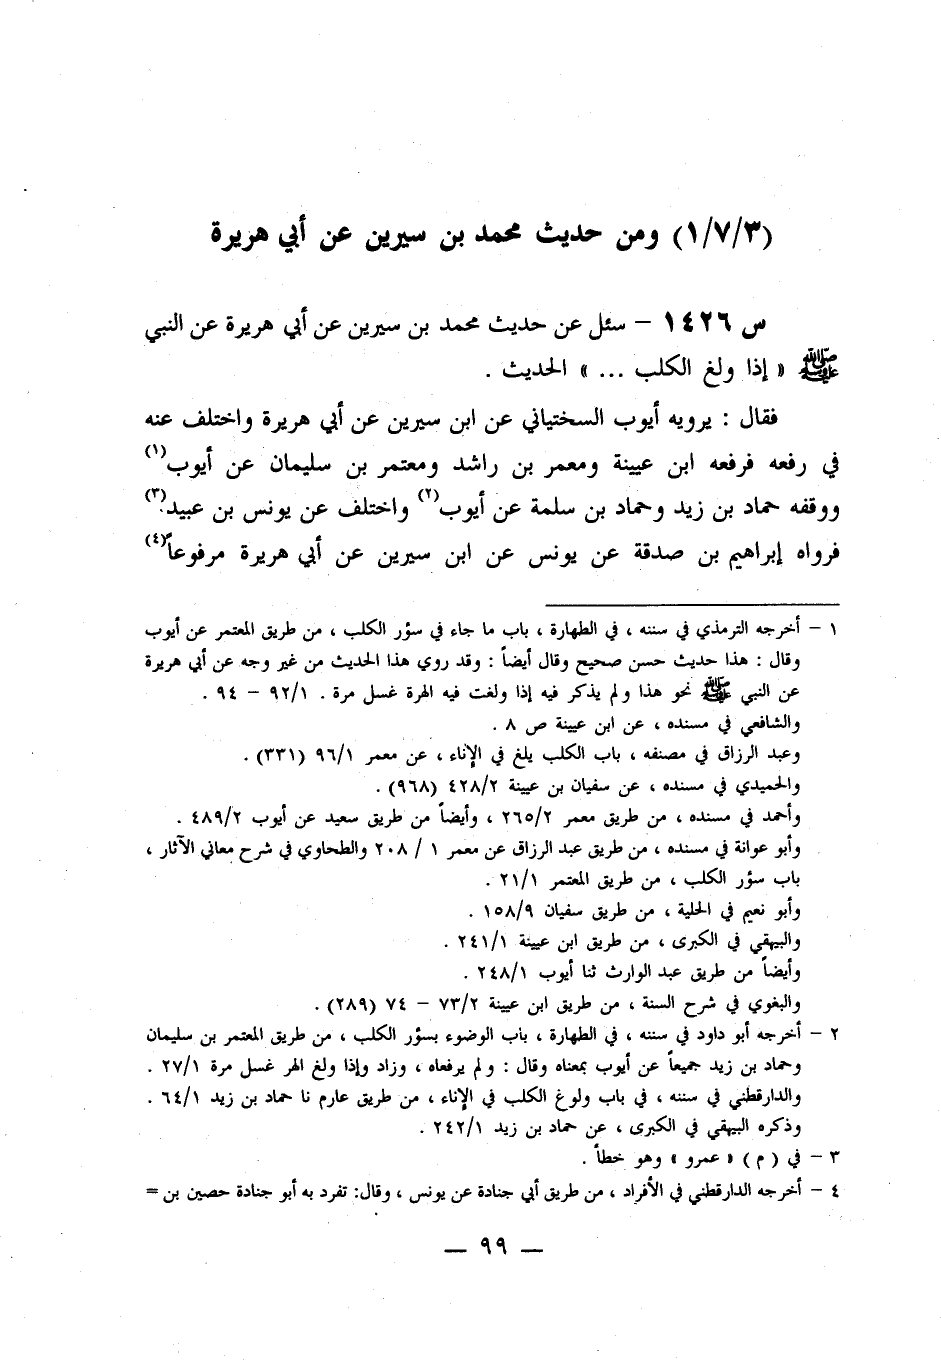 (١/٧/٣) ومن حديث محمد بن سيرين عن أبي هريرة
س ١٤٢٦ – سئل عن حديث محمد بن سيرين عن أبي هريرة عن النبي
ﷺ « إذا ولغ الكلب ... » الحديث .
فقال : يرويه أيوب السختياني عن ابن سيرين عن أبي هريرة واختلف عنه
في رفعه فرفعه ابن عيينة ومعمر بن راشد ومعتمر بن سليمان عن أيوب(١)
ووقفه حماد بن زيد وحماد بن سلمة عن أيوب(٢) واختلف عن يونس بن عبيد(٣).
فرواه إبراهيم بن صدقة عن يونس عن ابن سيرين عن أبي هريرة مرفوعاً(٤)
١ – أخرجه الترمذي في سننه ، في الطهارة ، باب ما جاء في سؤر الكلب ، من طريق المعتمر عن أيوب
وقال : هذا حديث حسن صحيح وقال أيضاً : وقد روي هذا الحديث من غير وجه عن أبي هريرة
عن النبي ﷺ نحو هذا ولم يذكر فيه إذا ولغت فيه الهرة غسل مرة . ٩٢/١ – ٩٤ .
والشافعي في مسنده ، عن ابن عيينة ص ٨ .
وعبد الرزاق في مصنفه ، باب الكلب يلغ في الإناء ، عن معمر ٩٦/١ (٣٣١) .
والحميدي في مسنده ، عن سفيان بن عيينة ٤٢٨/٢ (٩٦٨) .
وأحمد في مسنده ، من طريق معمر ٢٦٥/٢ ، وأيضاً من طريق سعيد عن أيوب ٤٨٩/٢ .
وأبو عوانة في مسنده ، من طريق عبد الرزاق عن معمر ١ / ٢٠٨ والطحاوي في شرح معاني الآثار ،
باب سؤر الكلب ، من طريق المعتمر ٢١/١ .
وأبو نعيم في الحلية ، من طريق سفيان ١٥٨/٩ .
والبيهقي في الكبرى ، من طريق ابن عيينة ٢٤١/١ .
وأيضاً من طريق عبد الوارث ثنا أيوب ٢٤٨/١ .
والبغوي في شرح السنة ، من طريق ابن عيينة ٧٣/٢ – ٧٤ (٢٨٩) .
٢ – أخرجه أبو داود في سننه ، في الطهارة ، باب الوضوء بسؤر الكلب ، من طريق المعتمر بن سليمان
وحماد بن زيد جميعاً عن أيوب بمعناه وقال : ولم يرفعاه ، وزاد وإذا ولغ الهر غسل مرة ٢٧/١ .
والدارقطني في سننه ، في باب ولوغ الكلب في الإناء ، من طريق عارم نا حماد بن زيد ٦٤/١ .
وذكره البيهقي في الكبرى ، عن حماد بن زيد ٢٤٢/١ .
٣ – في ( م ) « عمرو » وهو خطأ .
٤ – أخرجه الدارقطني في الأفراد ، من طريق أبي جنادة عن يونس ، وقال: تفرد به أبو جنادة حصين بن =
— ٩٩ —